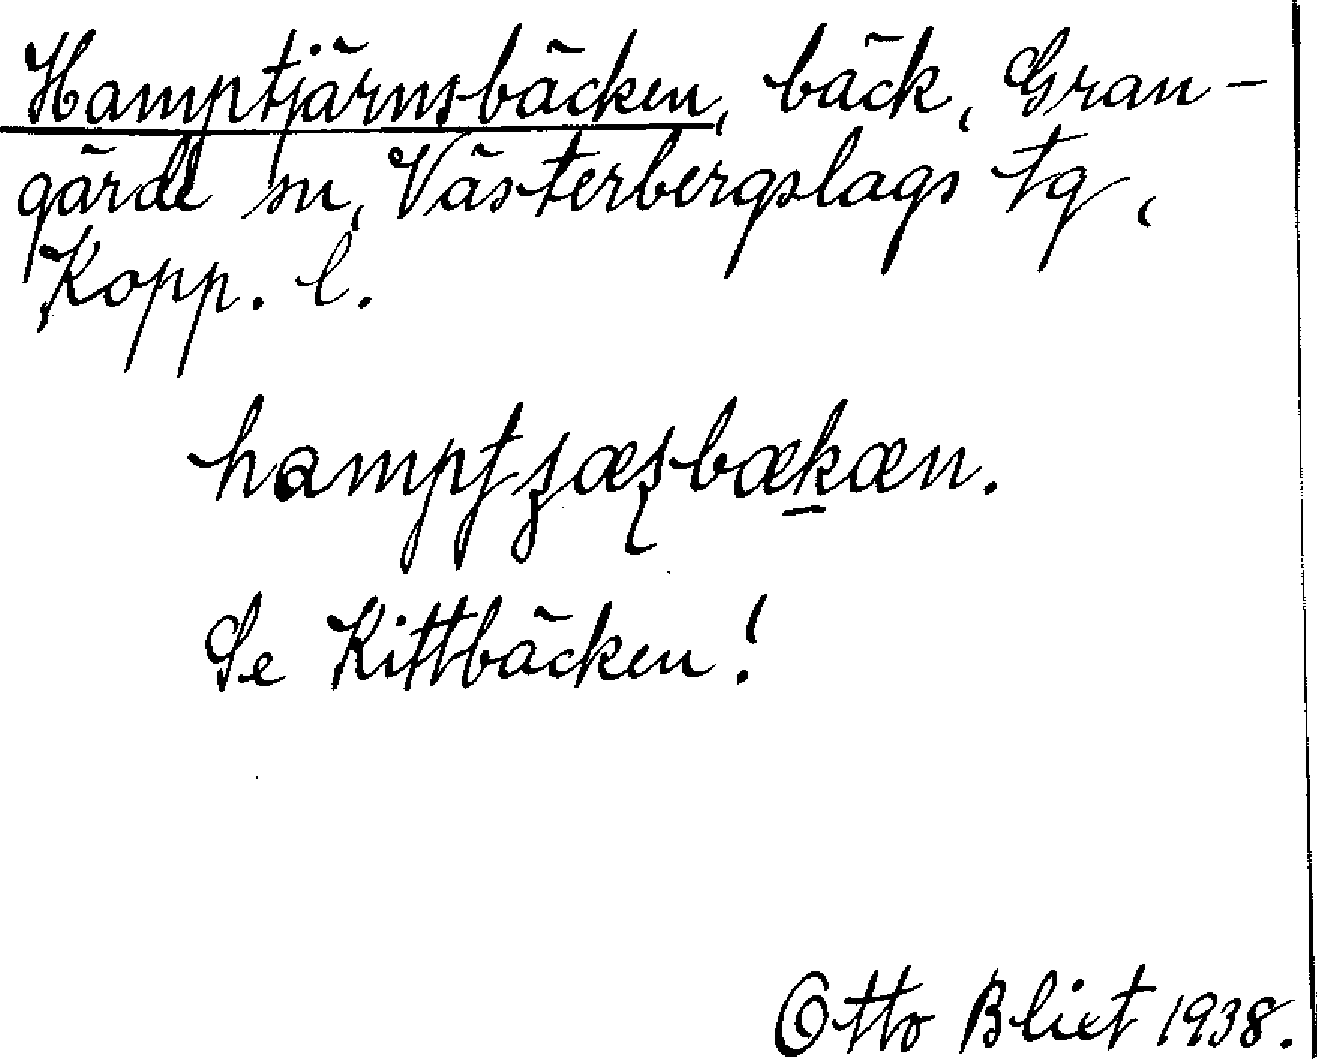 Hamptjärnsbäcken, bäck, Gran-
gärde sn, Västerbergslags tg,
Kopp. l.
hamptʒæʂbækæn.
Se Kittbäcken!
Otto Blixt 1938.